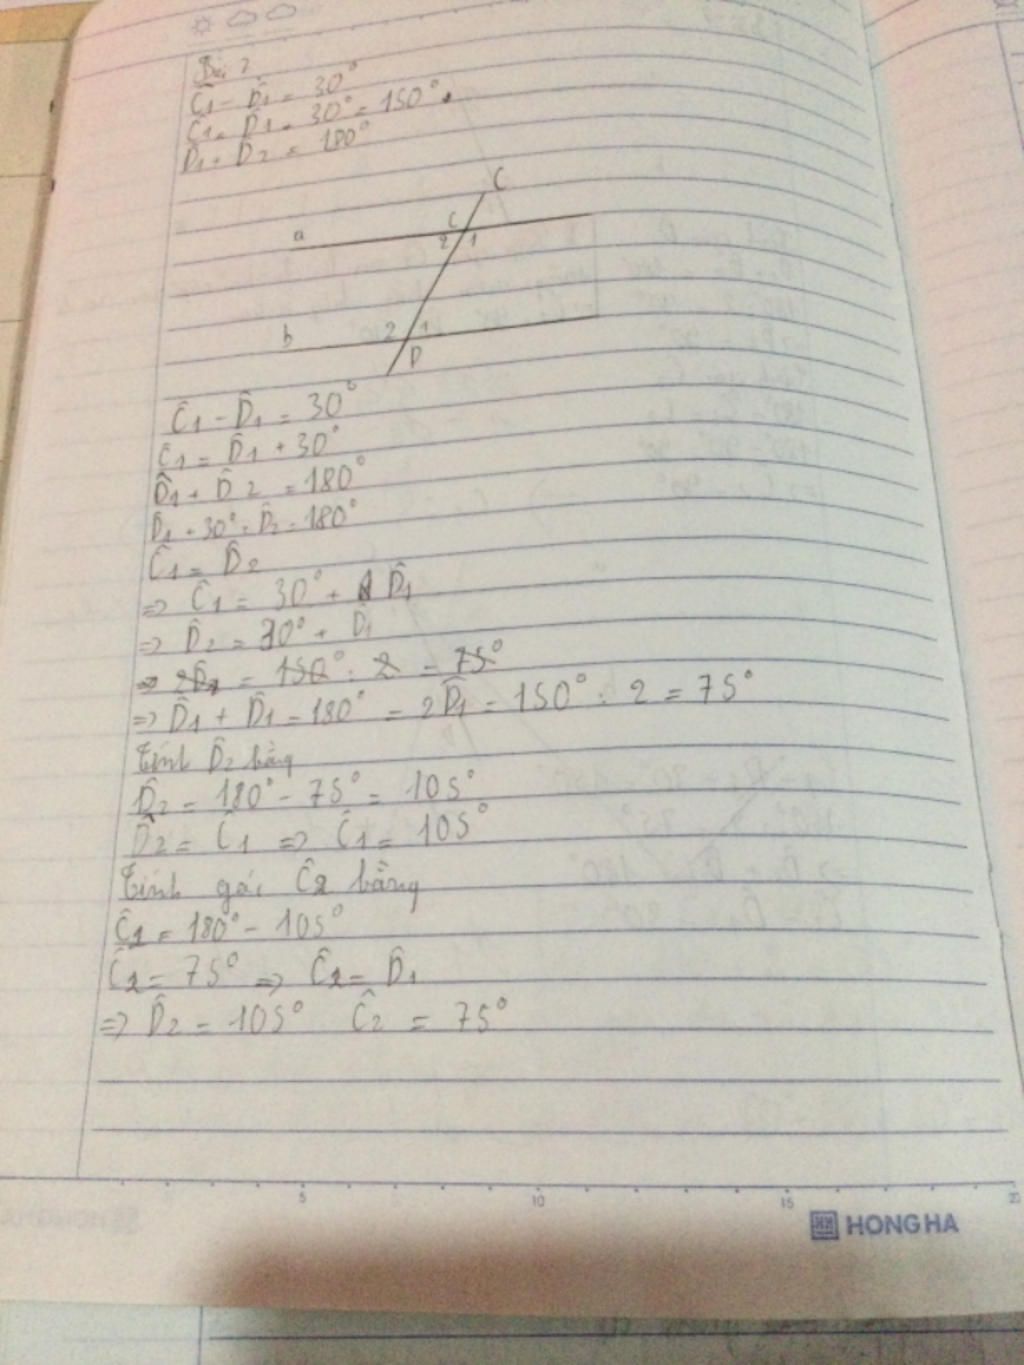 Bài 2
Ĉ1 - D̂1 = 30°
Ĉ1 = D̂1 = 30° = 150°.
D̂1 + D̂2 = 180°
C
a
C
2 1
b
2 1
D
Ĉ1 - D̂1 = 30°
Ĉ1 = D̂1 + 30°
D̂1 + D̂2 = 180°
D̂1 + 30° = D̂2 = 180°
Ĉ1 = D̂2
=> Ĉ1 = 30° + D̂1
=> D̂2 = 30° + D̂1
=> 2D̂1 = 150° : 2 = 75°
=> D̂1 + D̂1 = 180° = 2D̂1 = 150° : 2 = 75°
Tính D̂2 bằng
D̂2 = 180° - 75° = 105°
D̂2 = Ĉ1 => Ĉ1 = 105°
Tính góc Ĉ2 bằng
Ĉ2 = 180° - 105°
Ĉ2 = 75° => Ĉ2 = D̂1
=> D̂2 = 105° Ĉ2 = 75°
5 10 15 20
HONG HA